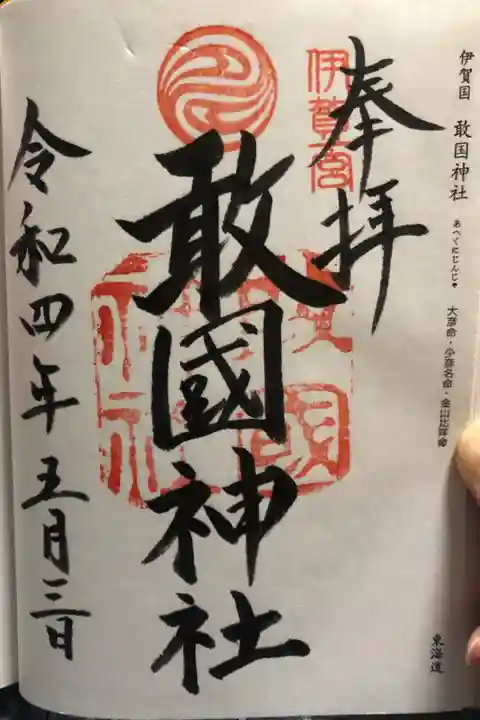 伊賀国 敢国神社 あへくにじんじゃ 大彦命・少彦名命・金山比咩命
東海道
奉拝
伊賀一宮
敢國神社
令和四年五月三日